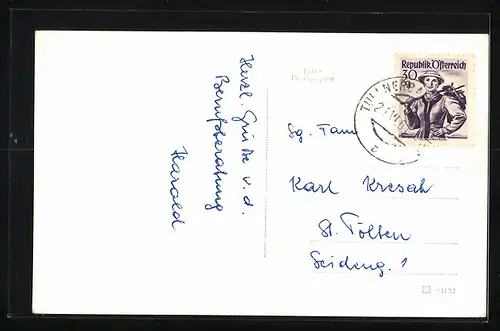 Herzl. Grüße v. d.
Berufsberatung
Harald
Echte
Photographie
Republik Österreich
30
TULLNERB
Sg. Fam
Karl Kresah
St. Pölten
Seideng. 1